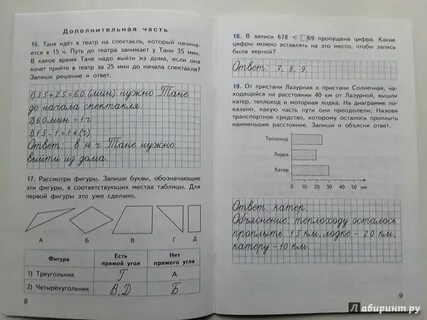 Дополнительная часть
16. Таня идёт в театр на спектакль, который начина-
ется в 15 ч. Путь до театра занимает у Тани 35 мин.
В какое время Тане надо выйти из дома, если она
хочет прийти в театр за 25 мин до начала спектакля?
Запиши решение и ответ.
1) 35+25=60 (мин) нужно Тане
до начала спектакля.
60 мин = 1 ч
2) 15-1=14 (ч)
Ответ: в 14 ч Тане нужно
выйти из дома.
17. Рассмотри фигуры. Запиши буквы, обозначающие
эти фигуры, в соответствующих местах таблицы. Для
первой фигуры это уже сделано.
А Б В Г Д
Фигура Есть прямой угол Нет прямого угла
1) Треугольник Г А
2) Четырёхугольник В, Д Б
8
18. В записи 678 < 69 пропущена цифра. Какие
цифры можно вставить на это место, чтобы запись
была верной?
Ответ: 7, 8, 9.
19. От пристани Лазурная к пристани Солнечная, на-
ходящейся на расстоянии 40 км от Лазурной, вышли
катер, теплоход и моторная лодка. На диаграмме по-
казано, какую часть пути они преодолели. Назови
транспортное средство, которому осталось проплыть
наименьшее расстояние. Запиши и объясни ответ.
Теплоход
Лодка
Катер
0 10 20 30 40 50 км
Ответ: катер.
Объяснение: теплоходу осталось
проплыть 15 км, лодке - 20 км,
катеру - 10 км.
9
Лабиринт.ру